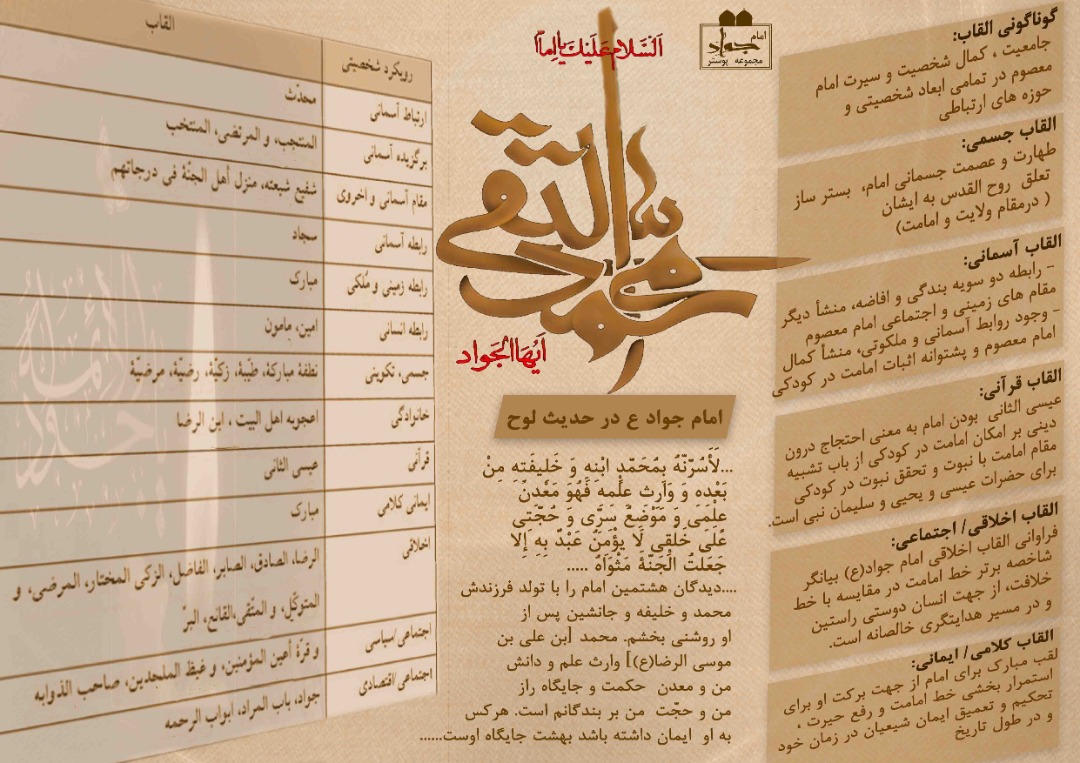 گوناگونی القاب:
جامعیت ، کمال شخصیت و سیرت امام
معصوم در تمامی ابعاد شخصیتی و
حوزه های ارتباطی
القاب جسمی:
طهارت و عصمت جسمانی امام، بستر ساز
تعلق روح القدس به ایشان
( درمقام ولایت و امامت)
القاب آسمانی:
- رابطه دو سویه بندگی و افاضه، منشأ دیگر
مقام های زمینی و اجتماعی امام معصوم
- وجود روابط آسمانی و ملکوتی، منشأ کمال
امام معصوم و پشتوانه اثبات امامت در کودکی
القاب قرآنی:
عیسی الثانی بودن امام به معنی احتجاج درون
دینی بر امکان امامت در کودکی از باب تشبیه
مقام امامت با نبوت و تحقق نبوت در کودکی
برای حضرات عیسی و یحیی و سلیمان نبی است.
القاب اخلاقی/ اجتماعی:
فراوانی القاب اخلاقی امام جواد(ع) بیانگر
شاخصه برتر خط امامت در مقایسه با خط
خلافت، از جهت انسان دوستی راستین
و در مسیر هدایتگری خالصانه است.
القاب کلامی/ ایمانی:
لقب مبارک برای امام از جهت برکت او برای
استمرار بخشی خط امامت و رفع حیرت ،
تحکیم و تعمیق ایمان شیعیان در زمان خود
و در طول تاریخ
امام
جواد
مجموعه پوستر
اَلسَّلامُ عَلَیْكَ یا اِمامْ
محمد بن علی التقی
اَیُّهَا الجَواد
امام جواد ع در حدیث لوح
...لَأَسُرَّنَّهُ بِمُحَمَّدٍ ابْنِهِ وَ خَلِیفَتِهِ مِنْ
بَعْدِهِ وَ وَارِثِ عِلْمِهِ فَهُوَ مَعْدِنُ
عِلْمِی وَ مَوْضِعُ سِرِّی وَ حُجَّتِی
عَلَی خَلْقِی لَا یُؤْمِنُ عَبْدٌ بِهِ إِلَّا
جَعَلْتُ الْجَنَّةَ مَثْوَاهُ .....
....دیدگان هشتمین امام را با تولد فرزندش
محمد و خلیفه و جانشین پس از
او روشنی بخشم. محمد [بن علی بن
موسی الرضا(ع)] وارث علم و دانش
من و معدن حکمت و جایگاه راز
من و حجّت من بر بندگانم است. هرکس
به او ایمان داشته باشد بهشت جایگاه اوست......
رویکرد شخصیتی القاب
ارتباط آسمانی محدّث
برگزیده آسمانی المنتجب، و المرتضی، المنتخب
مقام آسمانی و اخروی شفیع شیعته، منزل أهل الجنّة فی درجاتهم
رابطه آسمانی سجاد
رابطه زمینی و مُلکی مبارک
رابطه انسانی امین، مامون
جسمی، تکوینی نطفة مبارکة، طیّبة، زکیّة، رضیّة، مرضیّة
خانوادگی اعجوبه اهل البیت ، ابن الرضا
قرآنی عیسی الثانی
ایمانی کلامی مبارک
اخلاقی الرضا، الصادق، الصابر، الفاضل، الزکی المختار، المرضی، و
المتوکّل، و المتّقی،القانع، البرّ
اجتماعی/سیاسی و قرّة أعین المؤمنین، و غیظ الملحدین، صاحب الذوابه
اجتماعی/اقتصادی جواد، باب المراد، ابواب الرحمه